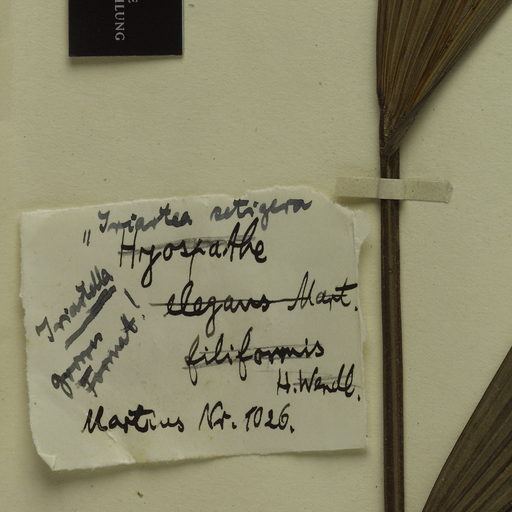 LUNG
„Iriartea setigera
Hyospathe
elegans Mart.
filiformis
H. Wendl.
Martius Nr. 1026.
Iriartella
grosses
Format!